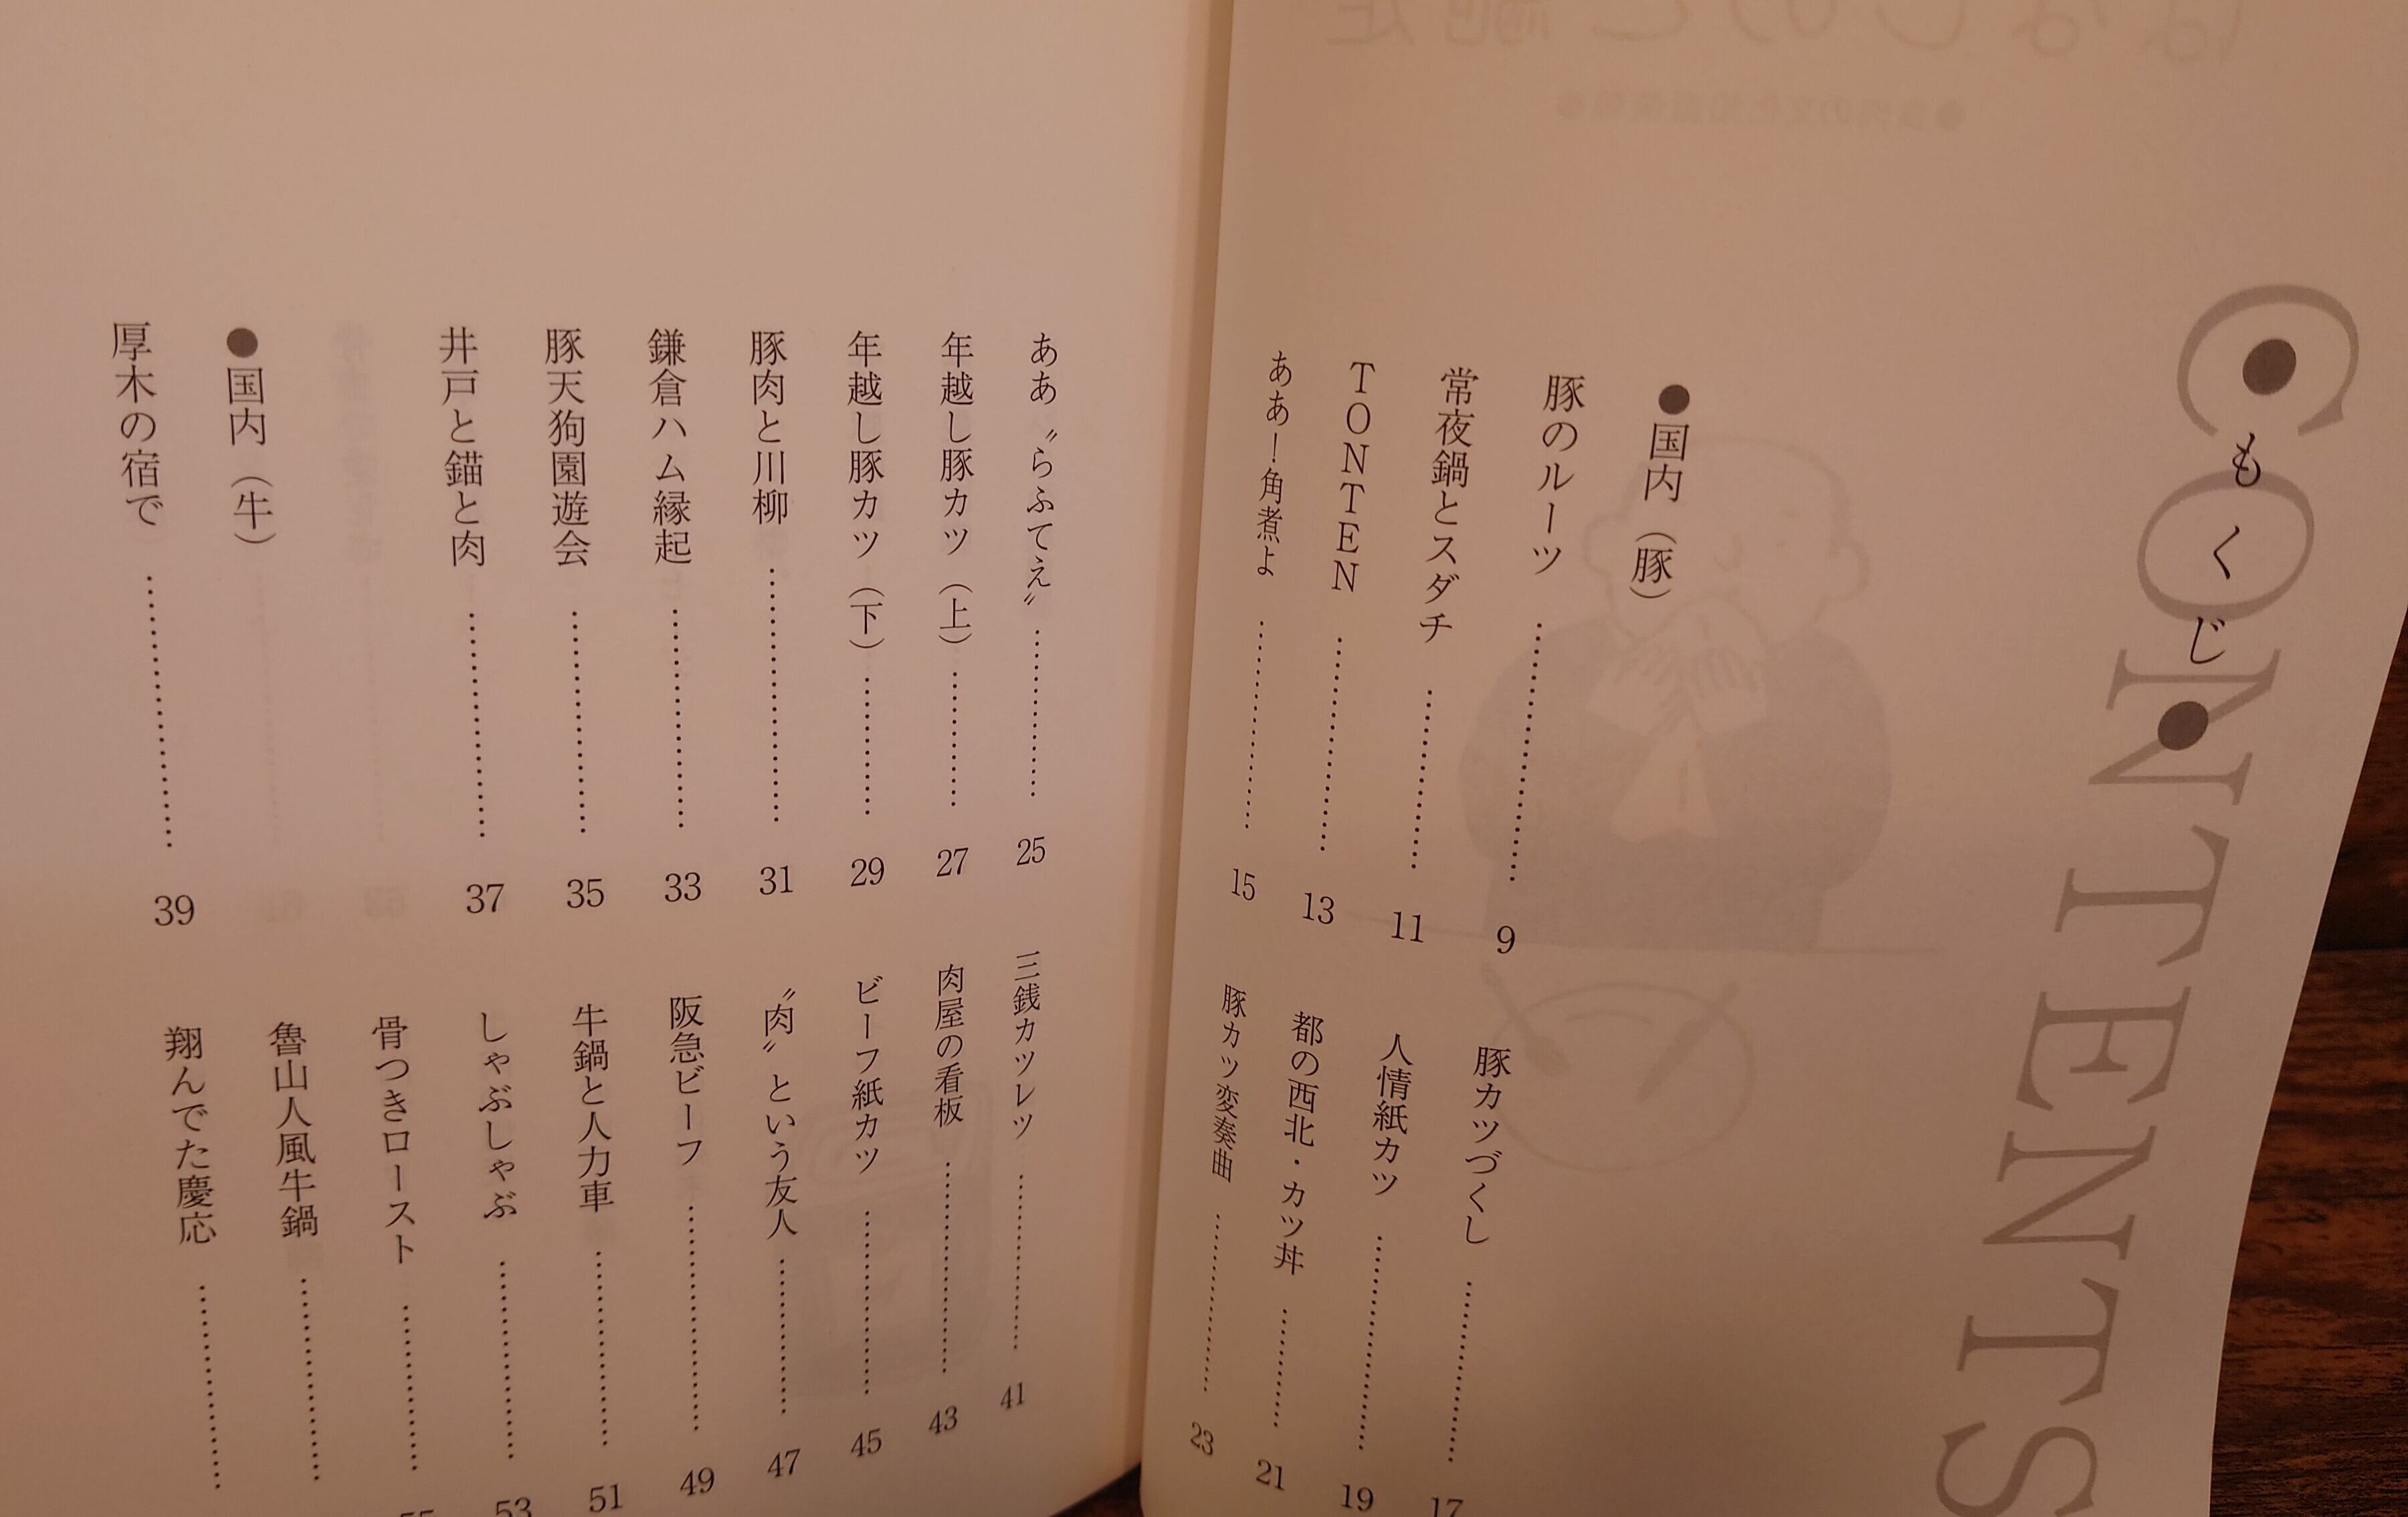 CONTENTS
●もくじ●
●国内（豚）
豚のルーツ……………… 9
常夜鍋とスダチ……………… 11
TONTEN……………… 13
ああ！角煮よ……………… 15
豚カツづくし……………… 17
人情紙カツ……………… 19
都の西北・カツ丼……………… 21
豚カツ変奏曲……………… 23
ああ〝らふてえ〟……………… 25
年越し豚カツ（上）……………… 27
年越し豚カツ（下）……………… 29
豚肉と川柳……………… 31
鎌倉ハム縁起……………… 33
豚天狗園遊会……………… 35
井戸と錨と肉……………… 37
●国内（牛）
厚木の宿で……………… 39
三銭カツレツ……………… 41
肉屋の看板……………… 43
ビーフ紙カツ……………… 45
〝肉〟という友人……………… 47
阪急ビーフ……………… 49
牛鍋と人力車……………… 51
しゃぶしゃぶ……………… 53
骨つきロースト……………… 55
魯山人風牛鍋………………
翔んでた慶応………………